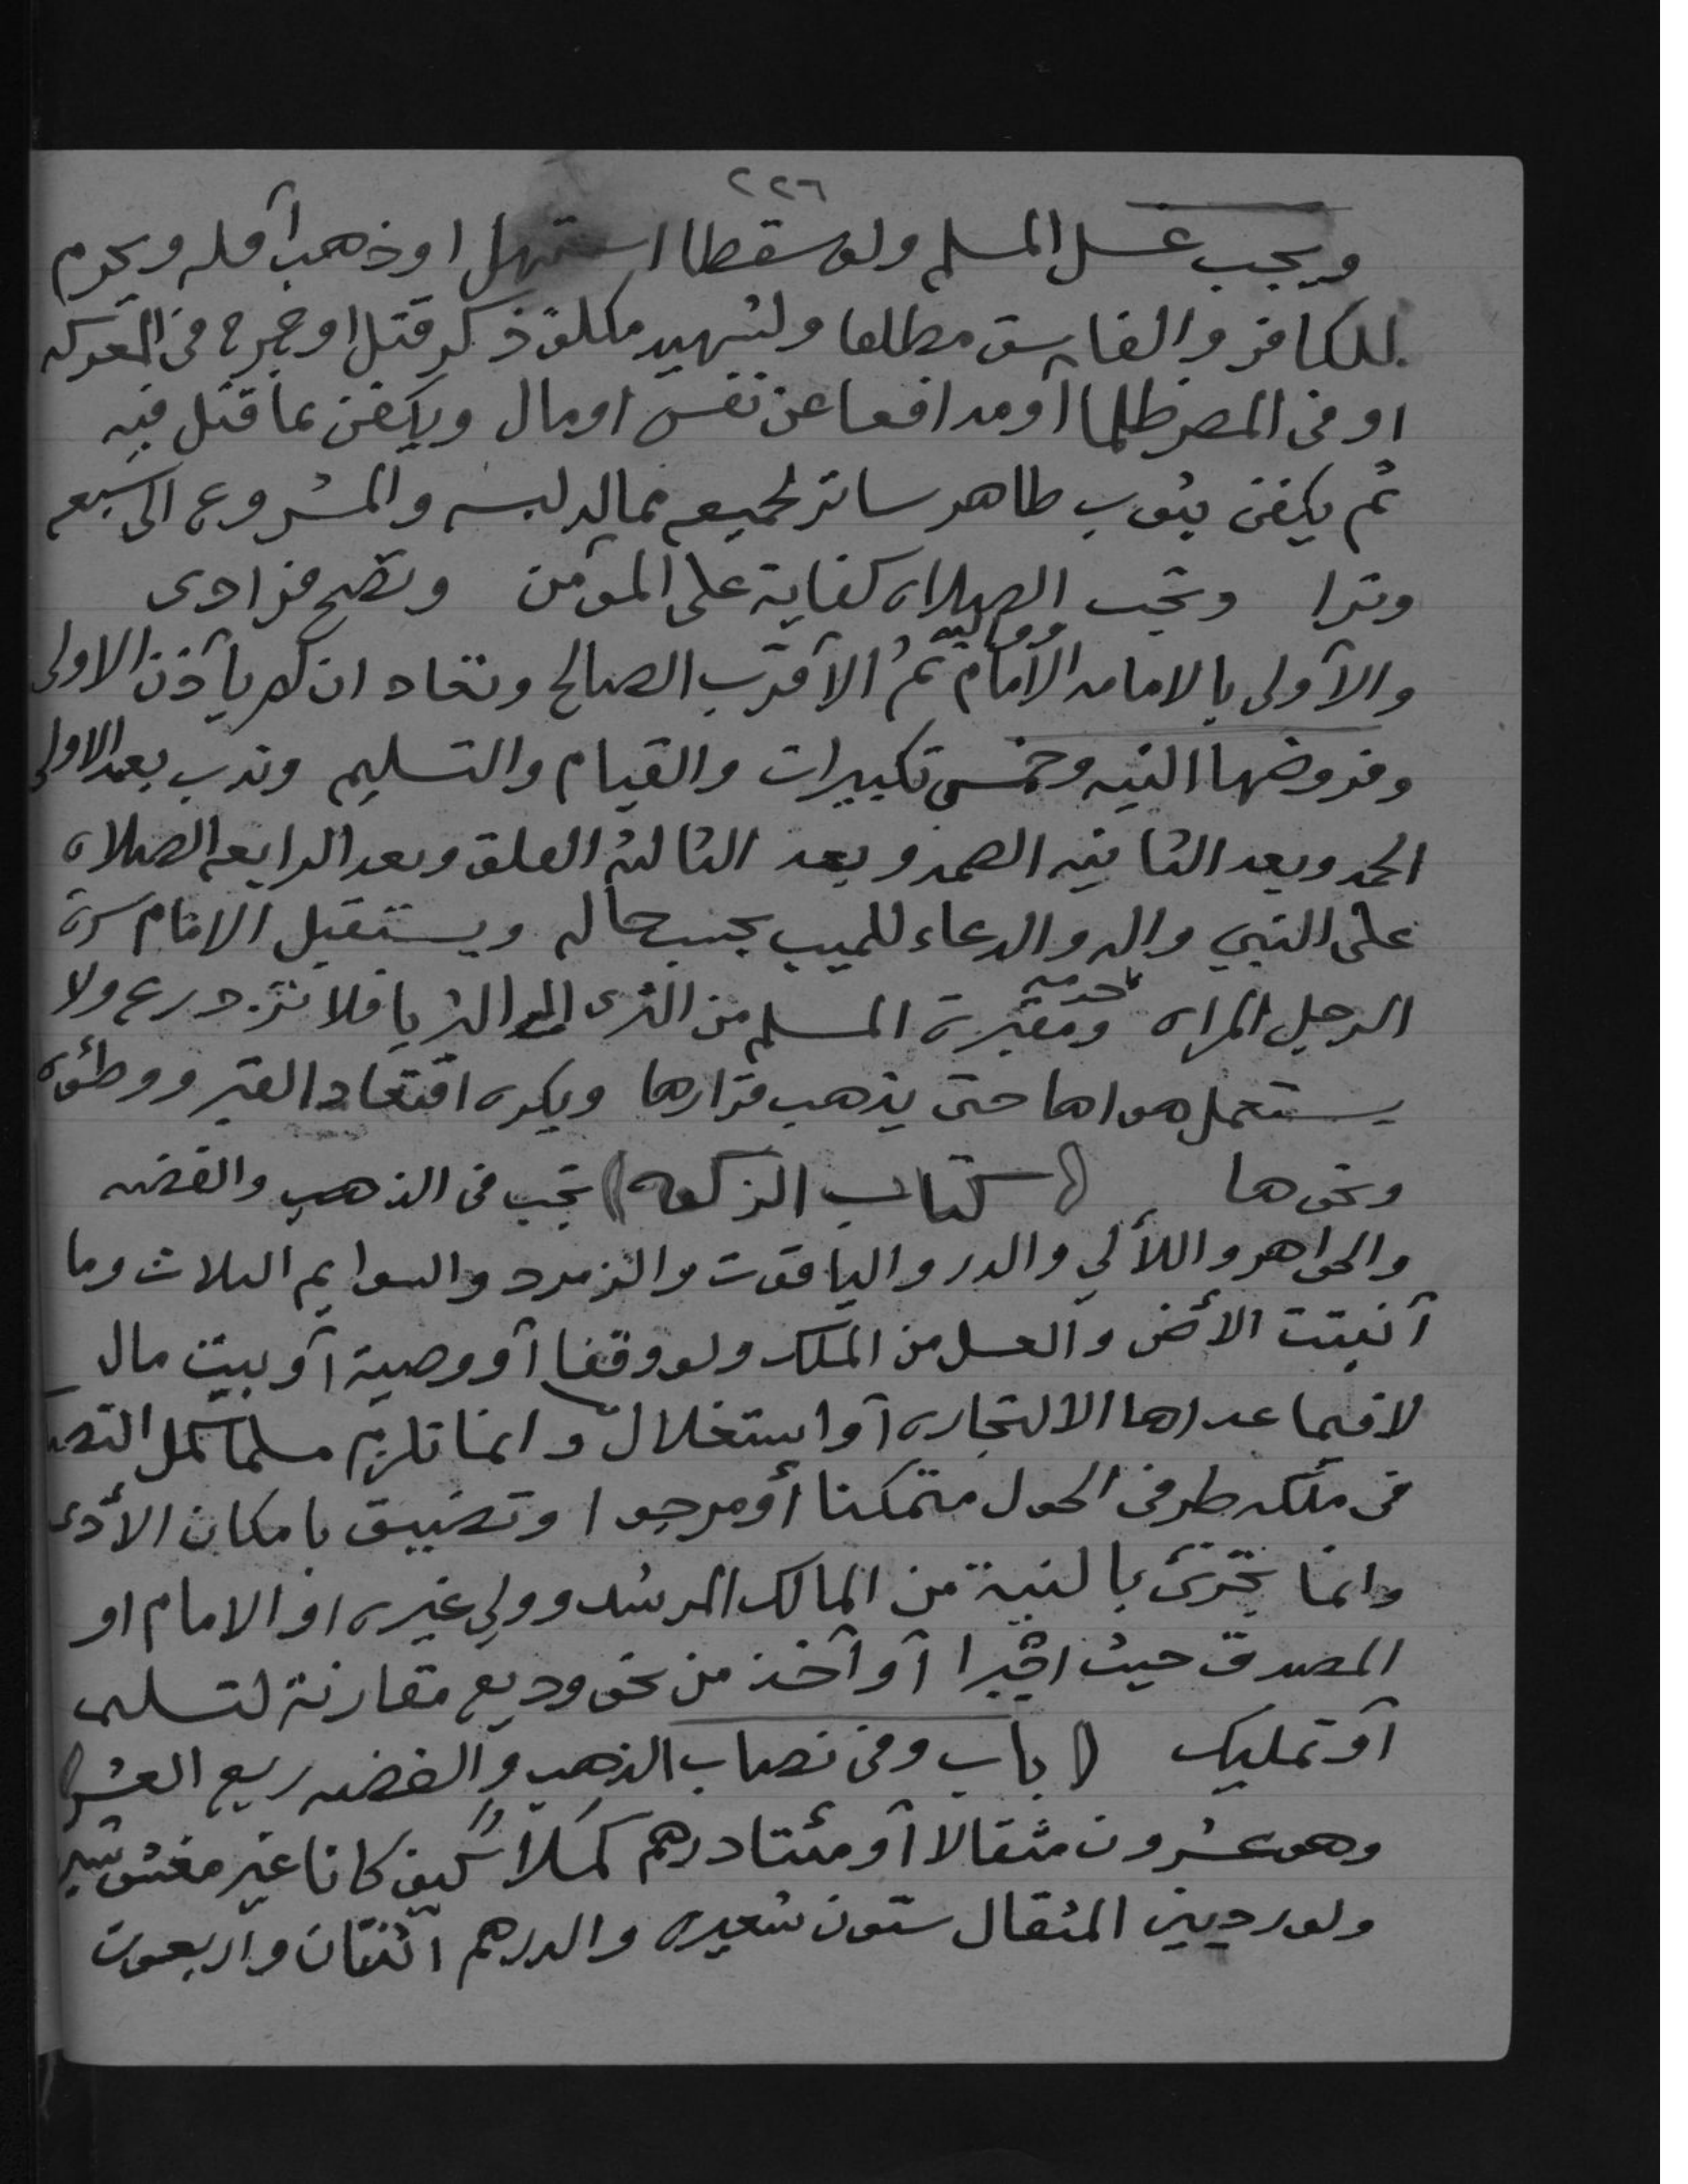 ٢٢٦
ويجب غسل المسلم ولو سقطا استهل او ذهب أقله ويحرم
للكافر والفاسق مطلقا ولشهيد مكلف ذكر قتل او جرح في المعركه
او في المصر ظلما أو مدافعا عن نفس او مال ويكفن بما قتل فيه
ثم يكفن بثوب طاهر ساتر لجميعه مماله لبسه والمشروع الى سبعه
وترا وتجب الصلاه كفاية على المؤمن وتصح فرادى
والأولى بالامامه الامام وواليه ثم الأقرب الصالح وتعاد ان لم يأذن الاولى
وفروضها النيه وخمس تكبيرات والقيام والتسليم وندب بعد الاولى
الحمد وبعد الثانيه الصمد وبعد الثالثه الفلق وبعد الرابعه الصلاه
على النبي واله والدعاء للميت بحسب حاله ويستقبل الامام سرة
الرجل المراه ومقبرة المسلم من الثرى الى الثريا فلا تزدرع ولا
يستعمل هواها حتى يذهب قرارها ويكره اقتعاد القبر ووطئوه
ونحوها (كتاب الزكوه) تجب في الذهب والفضه
والجواهر واللألي والدر والياقوت والزمرد والسوايم الثلاث وما
أنبتت الأرض والعسل من الملك ولو وقفا أو وصية أو بيت مال
لا فيما عداها الا لتجاره أو استغلال وانما تلزم مسلما كمل النصاب
في ملكه طرفي الحول متمكنا أو مرجوا وتضيق بامكان الأدى
وانما تجزئ بالنية من المالك المرشد وولي غيره او الامام او
المصدق حيث اجبرا أو أخذ من نحو وديع مقارنة لتسليم
أو تمليك (باب وفي نصاب الذهب والفضه ربع العشر)
وهو عشرون مثقالا أو مئتا درهم كملا كيف كانا غير مغشوشين
ولو رديين المثقال ستون شعيره والدرهم اثنتان واربعون